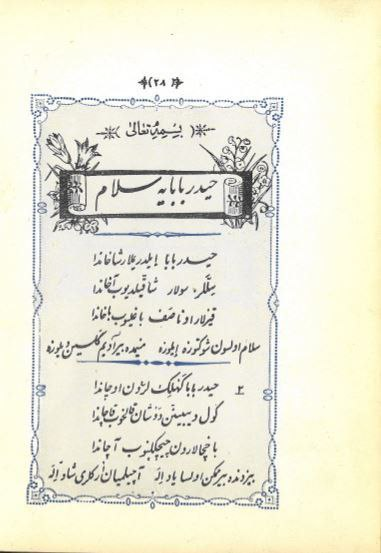 (۲۸)
بسمه تعالی
حیدربابایه سلام
حیدربابا ایلدیریملار شاخاندا
سئللر، سولار شاقّیلدیوب آخاندا
قیزلار اوناصف باغلیوب باخاندا
سلام اولسون شوکتوزه ائلوزه منیمده بیر آدیم گلسین دیلوزه
۲ حیدربابا کهلیک لرون اوچاندا
کول دیبیننن دوشان قالخوب قاچاندا
باخچالارون چیچکلنوب آچاندا
بیزدنده بیر ممکن اولسا یاد ائله آچیلمیان اُرکلری شاد ائله